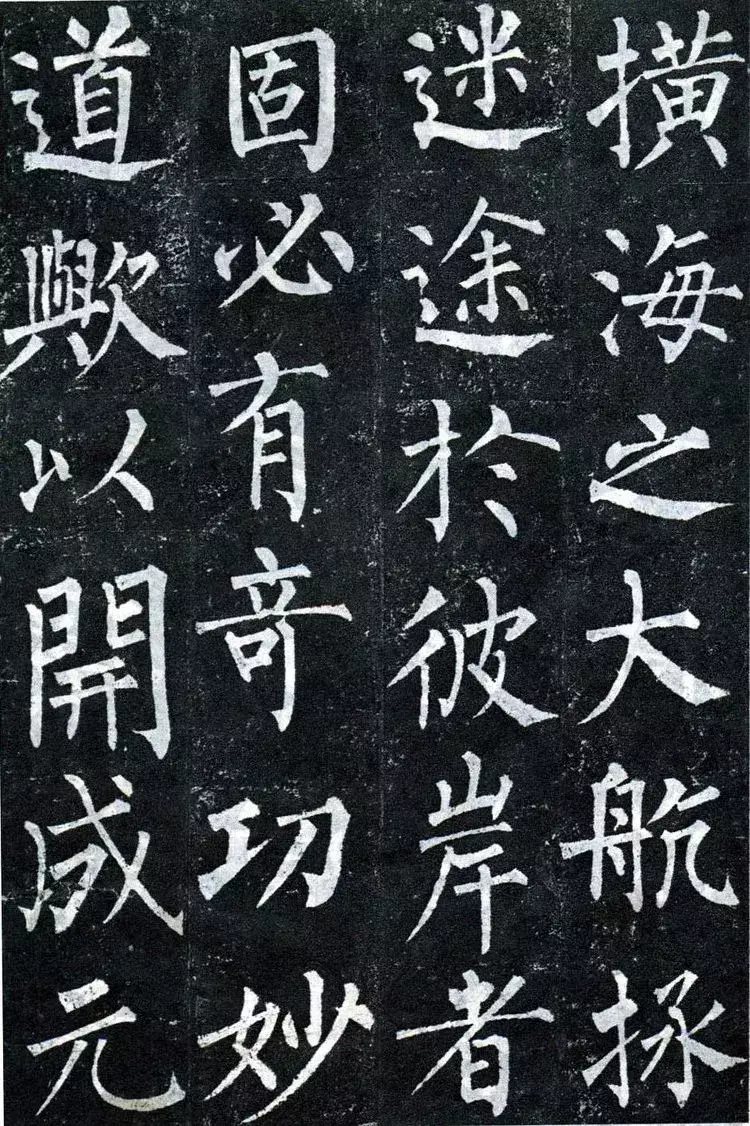 撗海之大航拯
迷途於彼岸者
固必有竒功妙
道歟以開成元